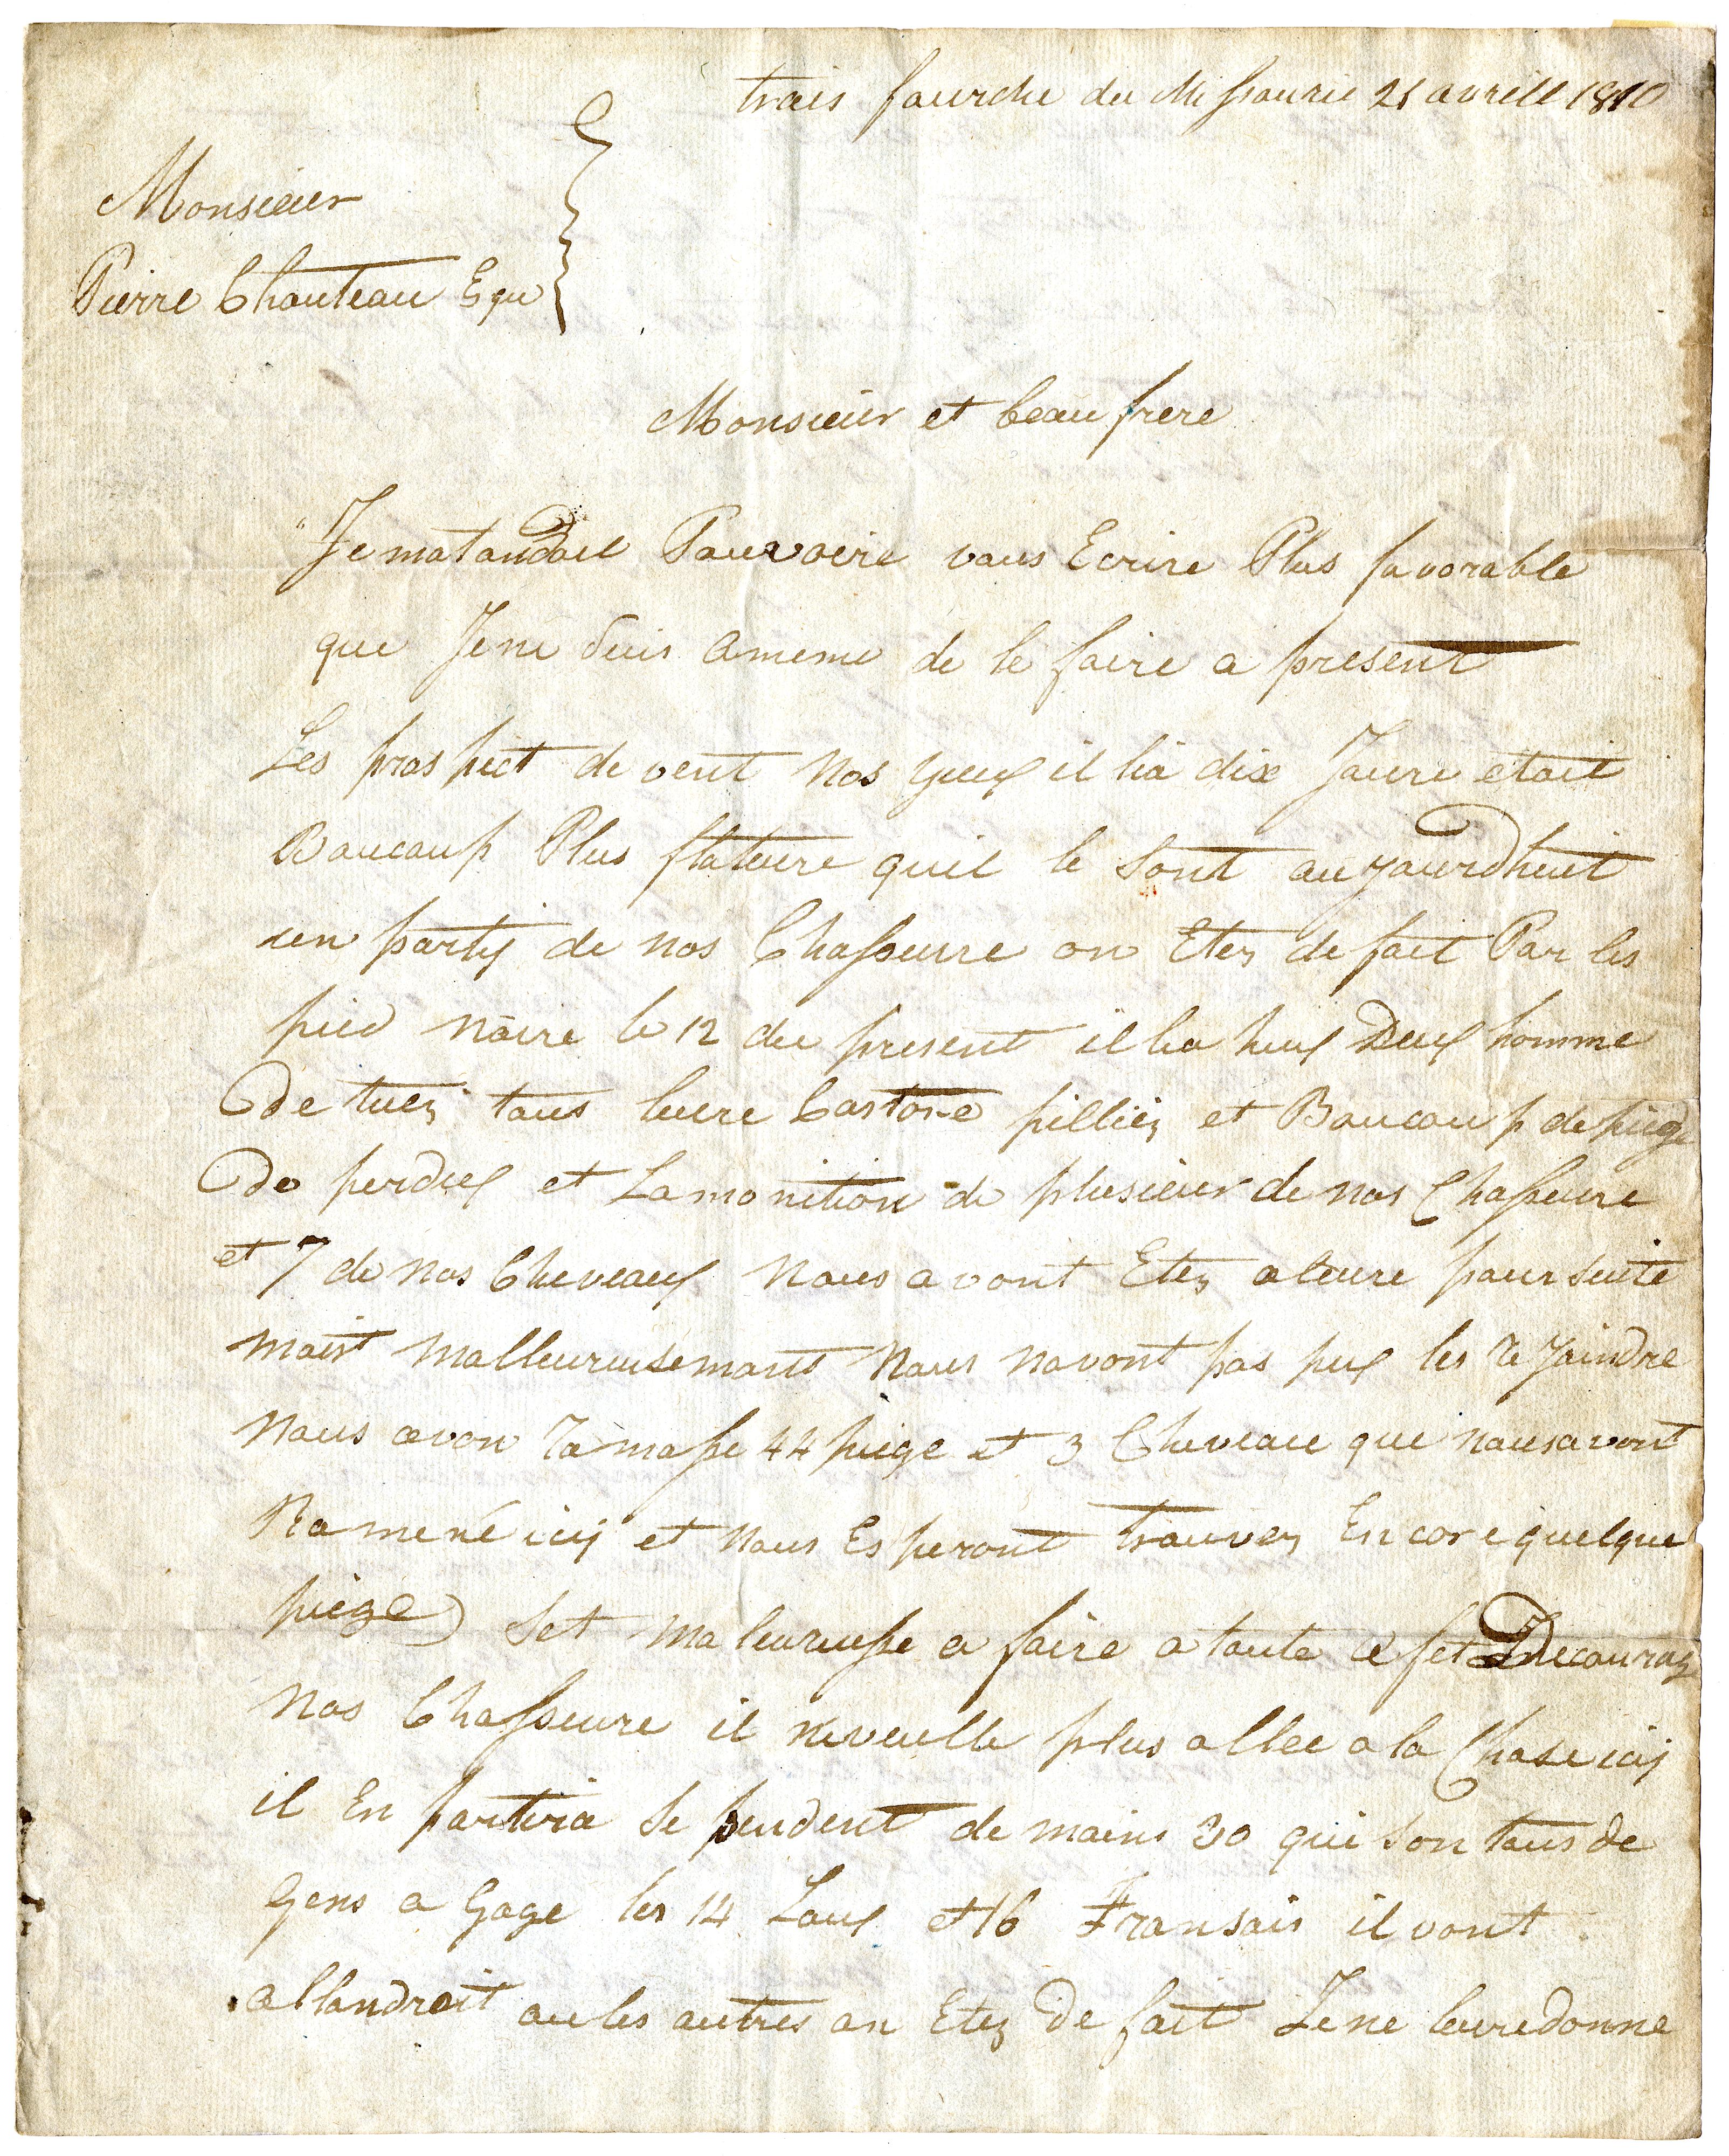 trais faurche du Missourie 21 avrill 1810
Monsieur
Pierre Chouteau Equ
Monsieur et beau frere
Je matandail Pauvoire vous Ecrire Plus favorable
que Jene Suis ameme de le faire a present
Les prospect de vent Nos yeux il lia dix Jaure etait
Baucoup Plus flateure quil le Sont aujaurdhuit
un party de nos Chasseure on Etez defait Par les
pied Naire le 12 du present il lia heux Deux homme
de tuez taus leure Castore pilliez et Baucoup de piege
de perdux et Lamonition de plusieur de nos Chasseure
et 7 de nos Cheveaux Nous avont Etez aleure poursuite
mait malleureusemant Nous navont pas pux les rejaindre
Nous avon ramasse 44 piege et 3 Cheveau que nousavont
Ramené icy et nous Esperont trouvez Encore quelque
piege) Set maleureusse a faire a taute a fet Decourag
Nos Chasseure il neveulle plus allee a la Chase icy
il En partira Se pendent demains 30 qui Son taus de
Gens a Gage les 14 Laux et 16 Fransais il vont
allandroit au les autres on Etez defait Jene leuredonne